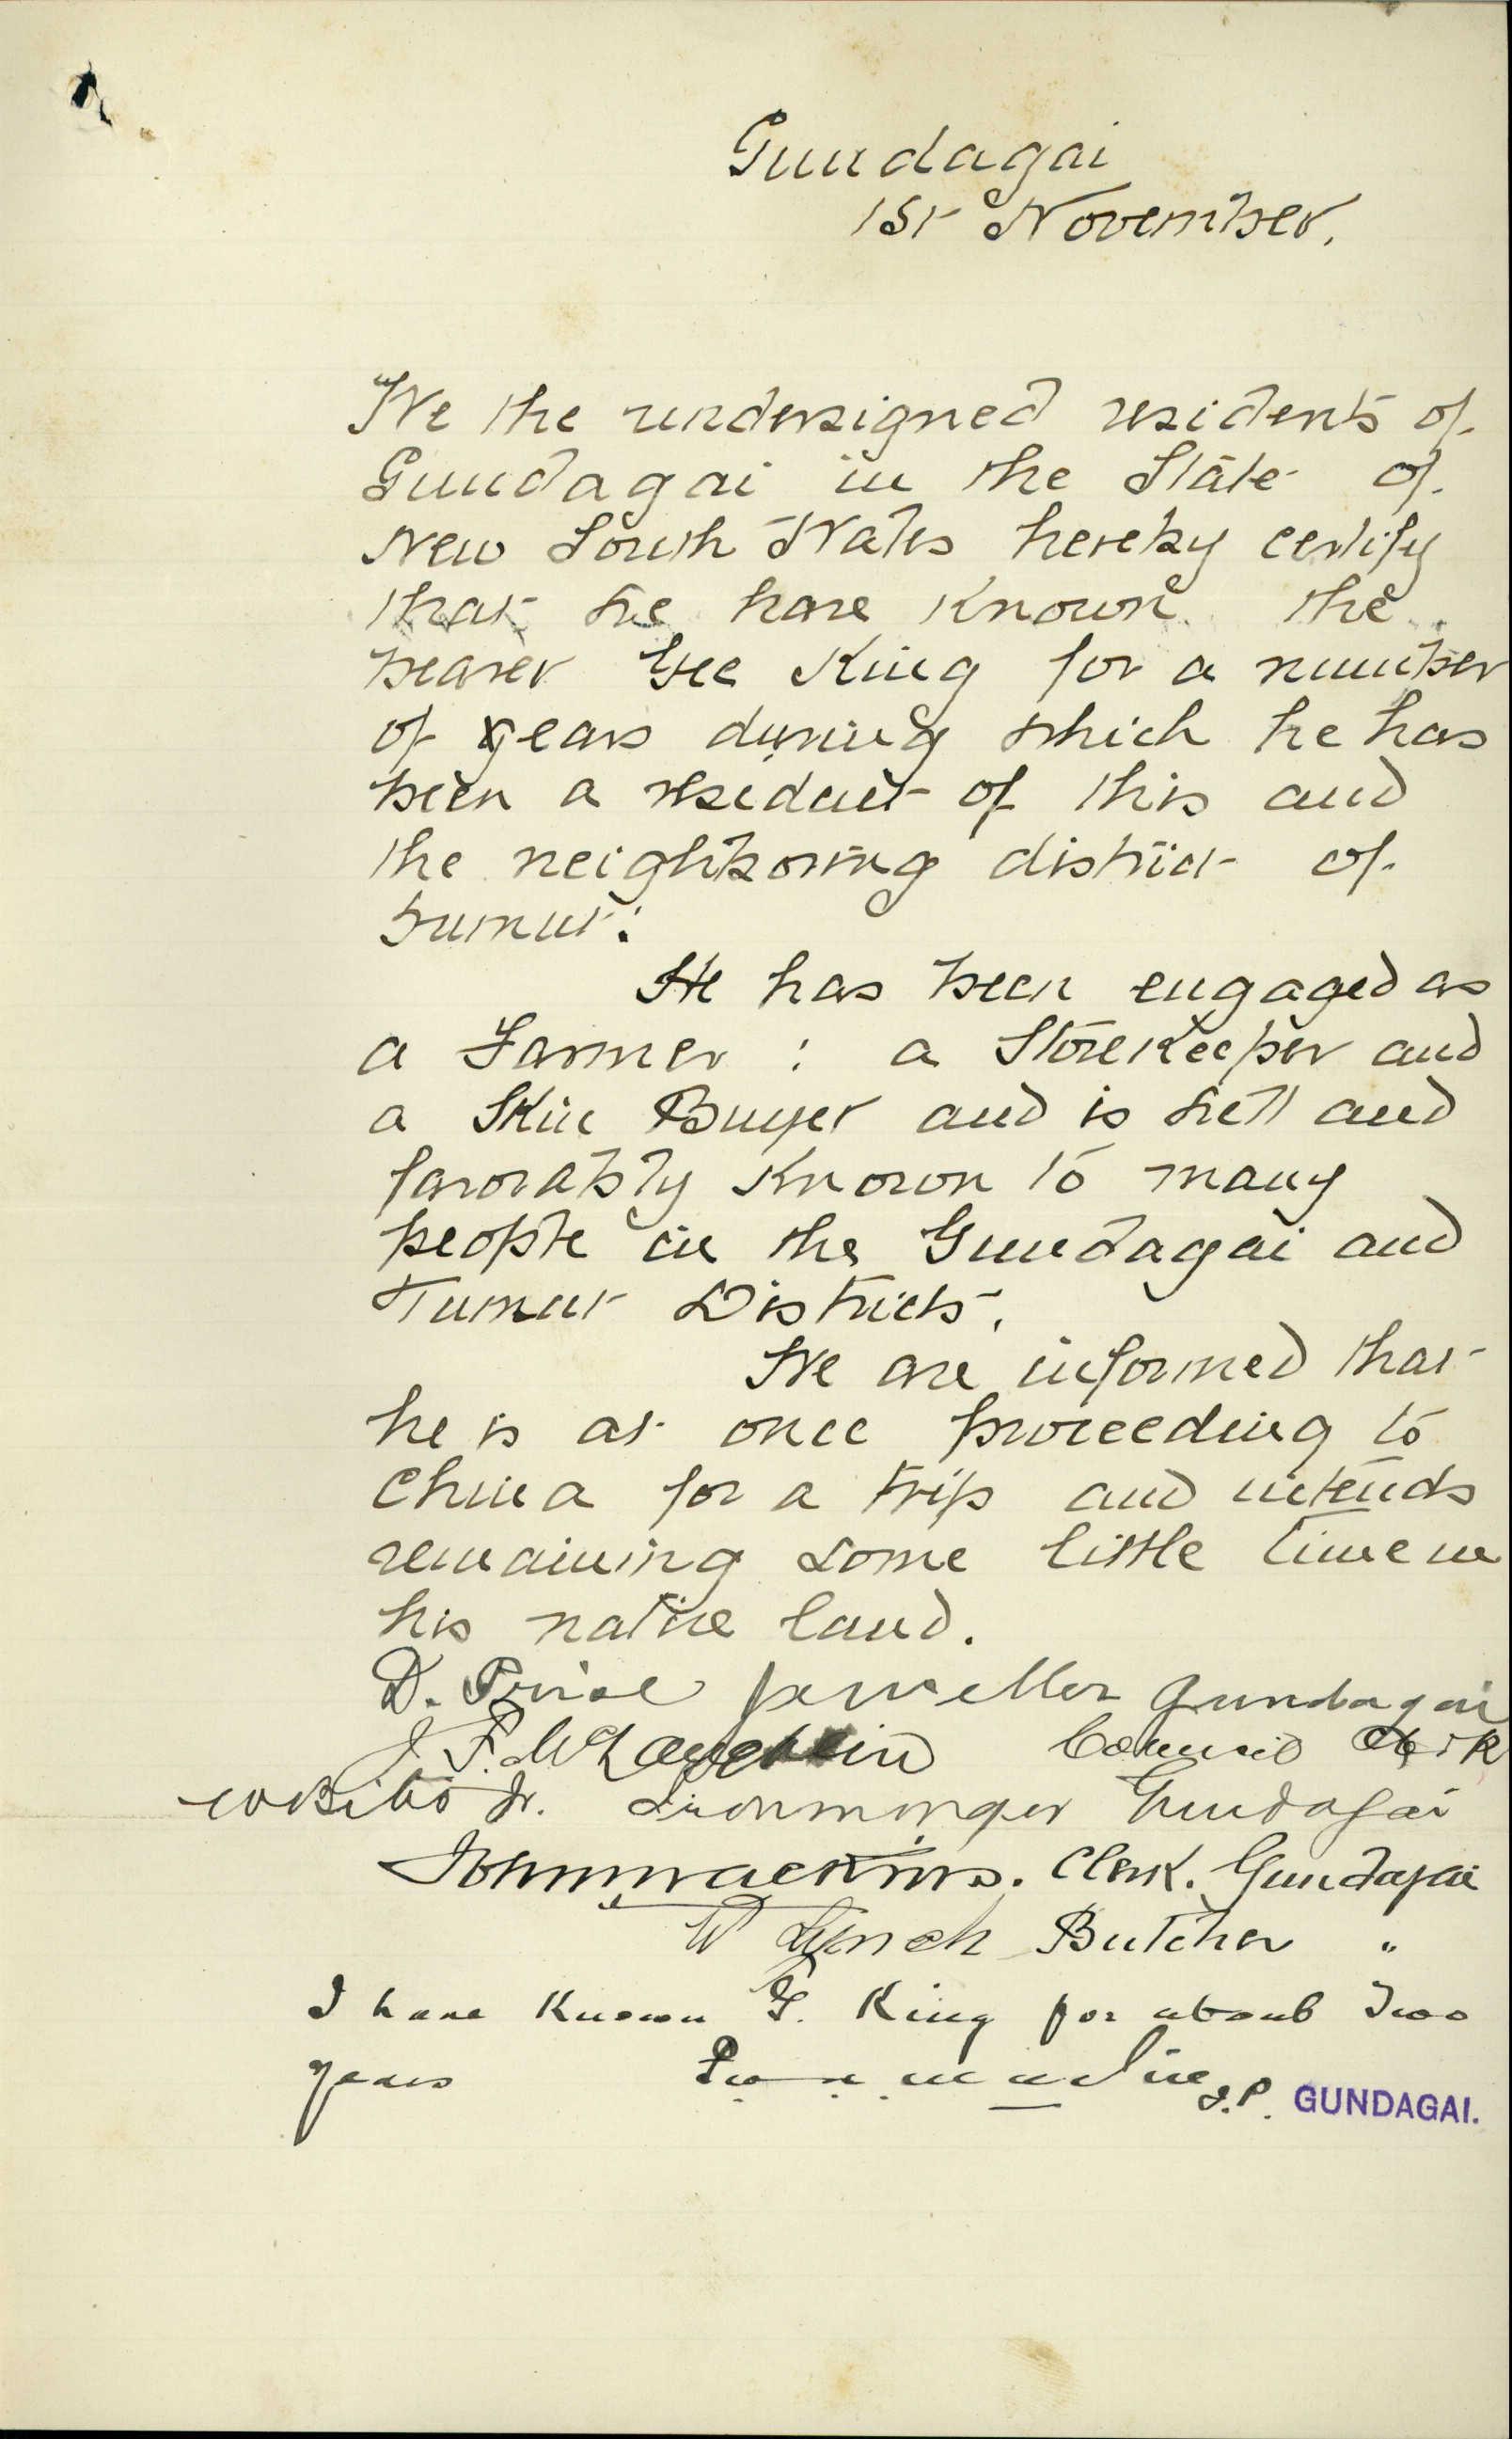 Gundagai
1st November.
We the undersigned residents of
Gundagai in the State of
New South Wales hereby certify
that we have known the
bearer Gee King for a number
of years during which he has
been a resident of this and
the neighboring district of
Tumut.
He has been engaged as
a Farmer : a Storekeeper and
a Skin Buyer and is well and
favorably known to many
people in the Gundagai and
Tumut Districts.
We are informed that
he is at once proceeding to
China for a trip and intends
remaining some little time in
his native land.
D. Jeweller Gundagai
J. F. McLaughlin Council Clerk
Jr. Ironmonger Gundagai
Clerk. Gundagai
W Lynch Butcher "
I have Known G. King for about Two
years J.P. GUNDAGAI.